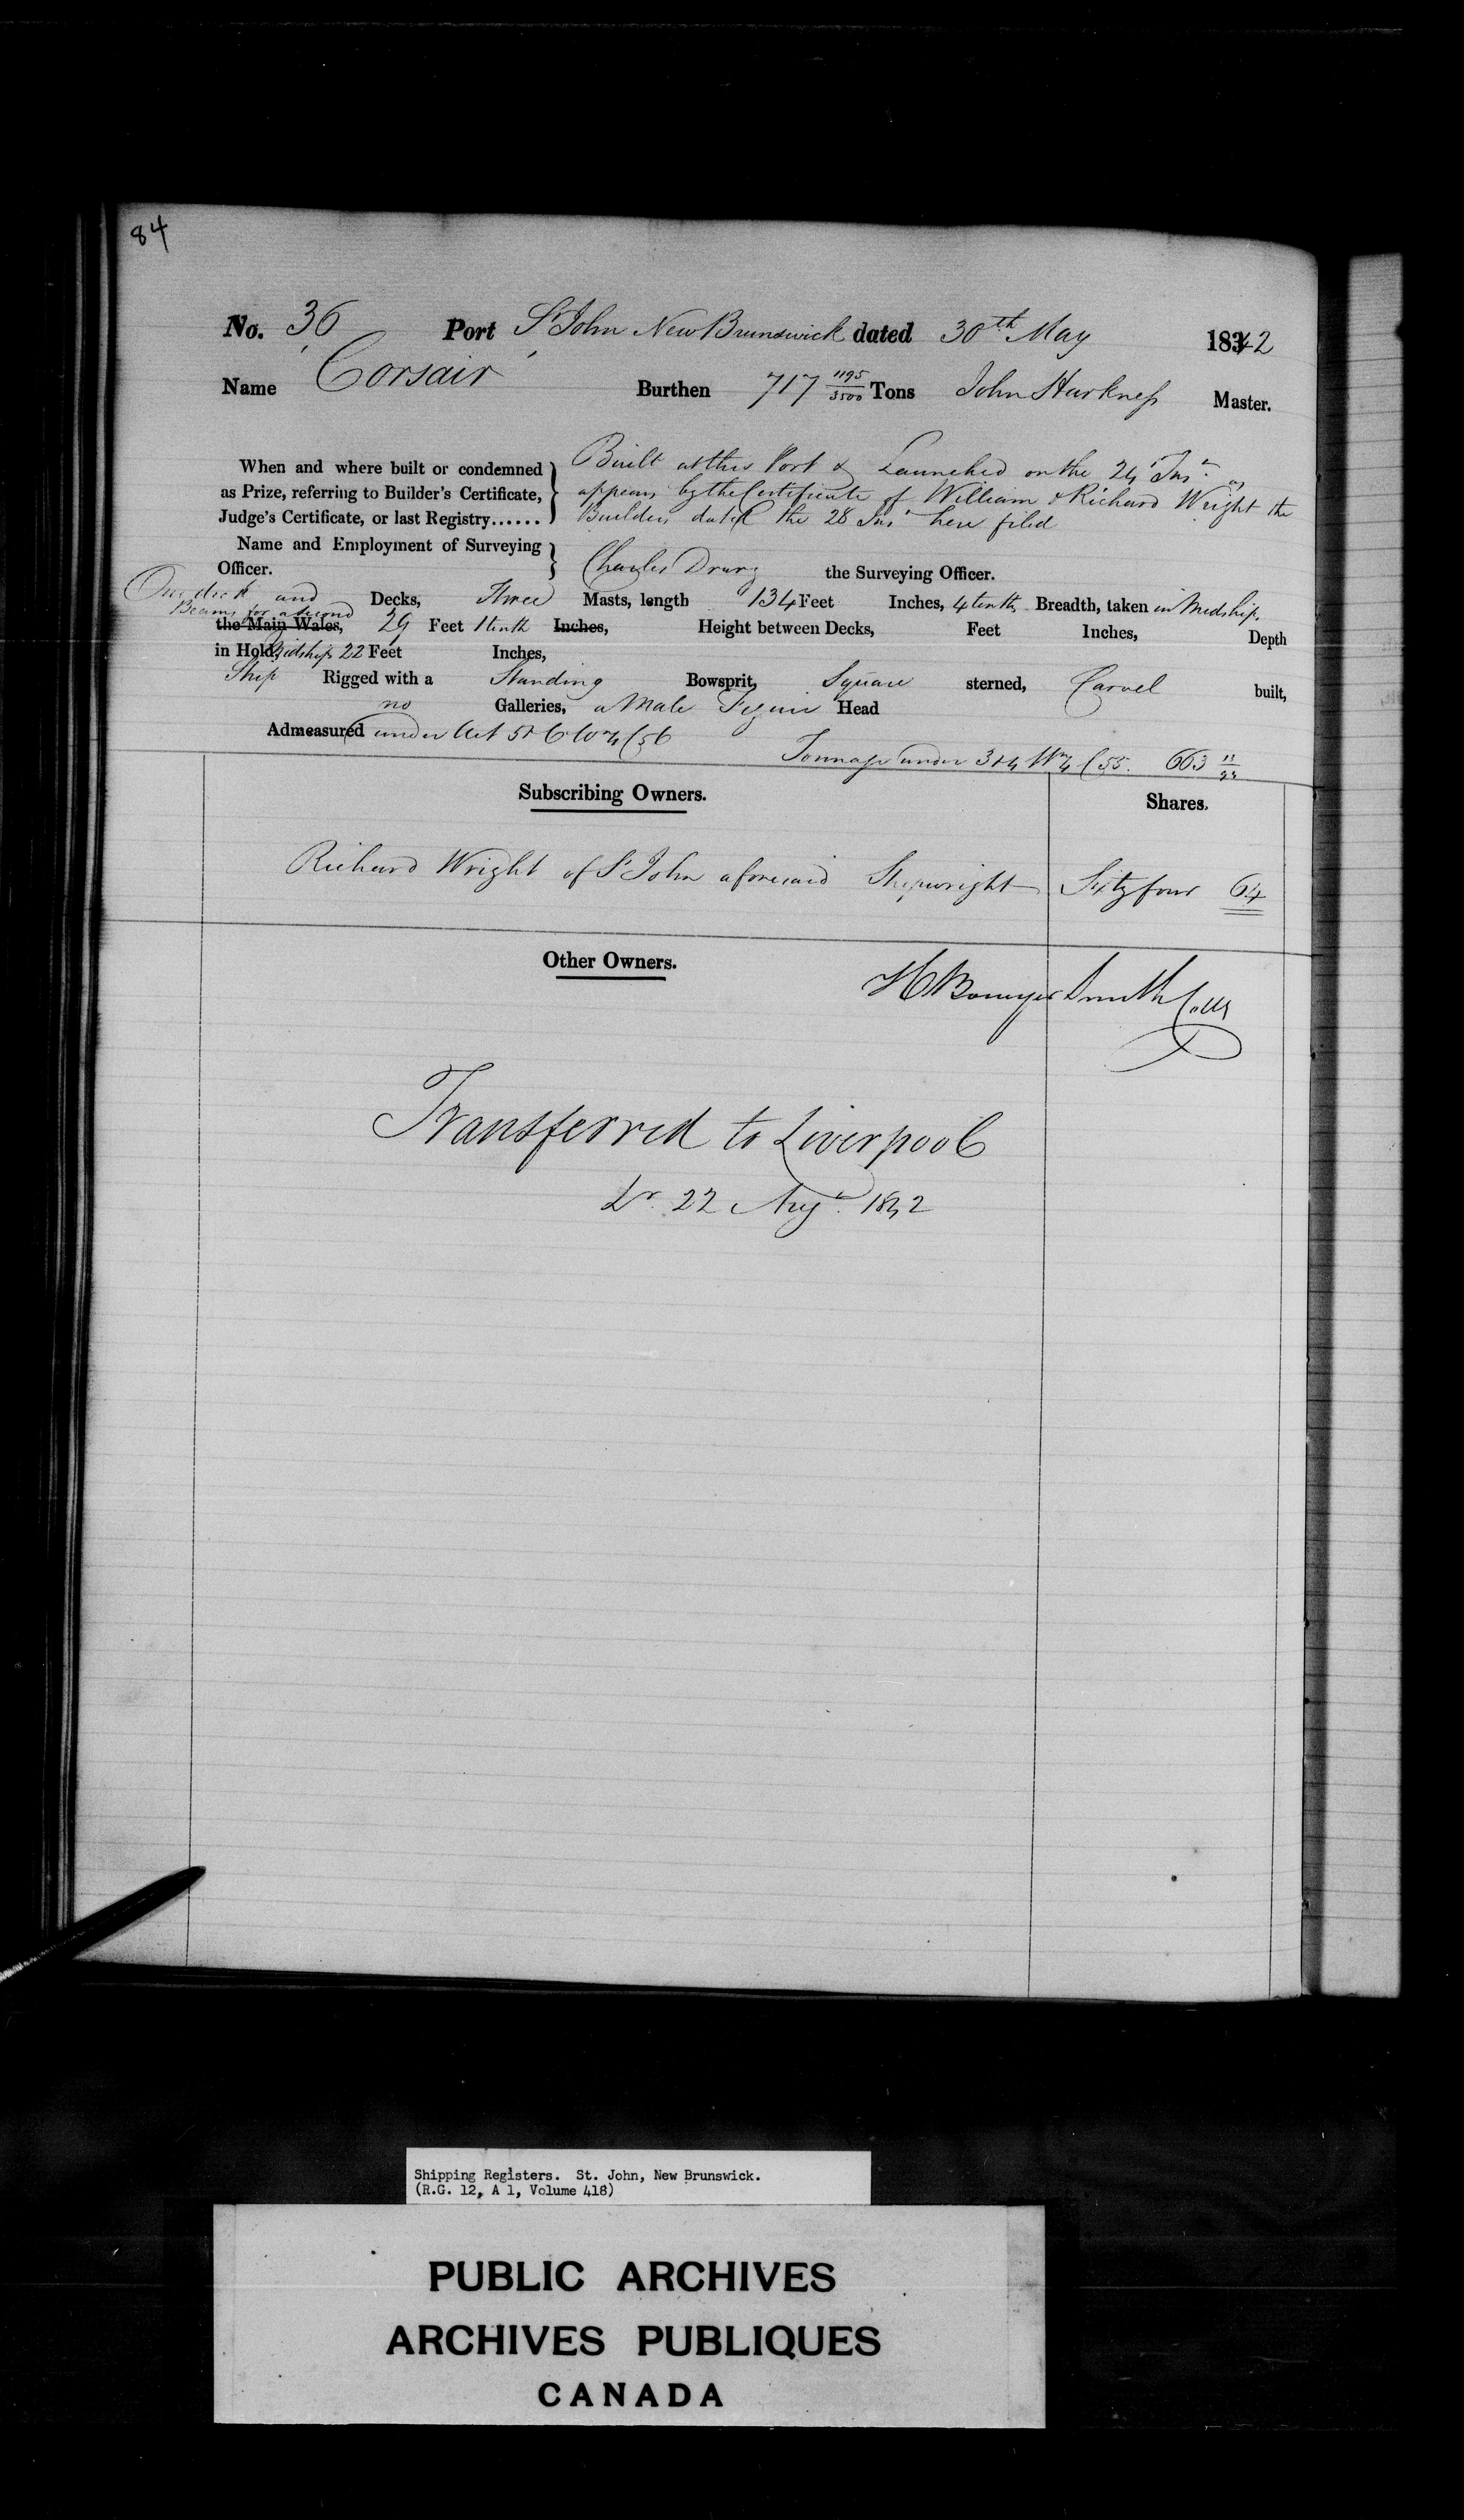 84
No. 36 Port St John New Brunswick dated 30th May 18342
Name Corsair Burthen 717 1195/3500 Tons John Harkness Master.
When and where built or condemned as Prize, referring to Builder's Certificate, Judge's Certificate, or last Registry......
Built at this Port & Launched on the 24 Inst as
appears by the Certificate of William & Richard Wright the
Builders dated the 28 Inst here filed
Name and Employment of Surveying Officer. Charles Drury the Surveying Officer.
One deck and Beams for a second Decks, Three Masts, length 134 Feet Inches, 4 tenths Breadth, taken in Midships
the Main Wales, 29 Feet 1 tenth Inches, Height between Decks, Feet Inches, Depth
in Hold, Midships 22 Feet Inches,
Ship Rigged with a Standing Bowsprit, Square sterned, Carvel built,
no Galleries, a Male Figure Head
Admeasured under Act 5 & 6 Wm 4 C 56
Tonnage under 3 & 4 Wm 4 C 55. 663
Subscribing Owners. Shares.
Richard Wright of St John aforesaid Shipwright Sixty four 64
Other Owners.
H Bowyer Smith Collr
Transferred to Liverpool
Lr 22 Augt 1842
Shipping Registers. St. John, New Brunswick.
(R.G. 12, A 1, Volume 418)
PUBLIC ARCHIVES
ARCHIVES PUBLIQUES
CANADA